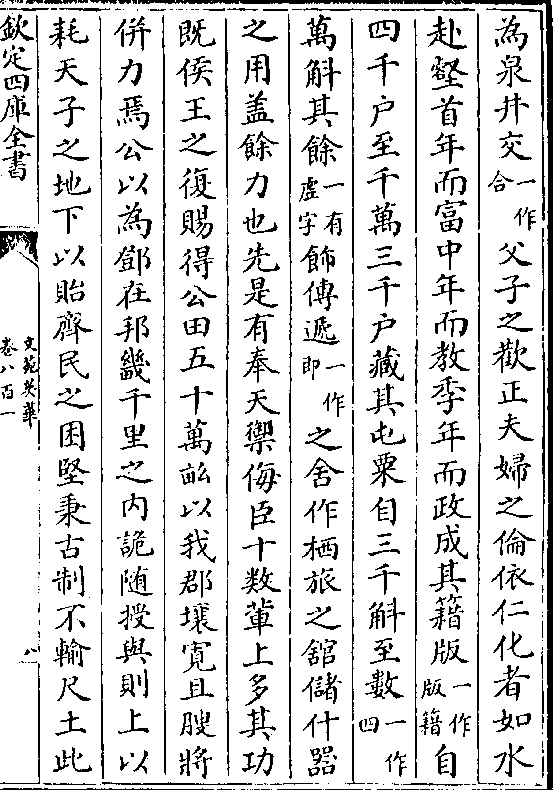 為泉井交一作合父子之歡正夫婦之倫依仁化者如水
赴壑首年而富中年而教季年而政成其籍版一作版籍自
四千戸至千萬三千戸藏其屯粟自三千斛至數一作四
萬斛其餘一有虚字飾傳遞一作即之舍作栖旅之舘儲什器
之用盖餘力也先是有奉天禦侮臣十數軰上多其功
既侯王之復賜得公田五十萬畆以我郡壤寛且腴將
併力焉公以為鄧在邦畿千里之内詭随授與則上以
耗天子之地下以貽齊民之困堅秉古制不輸尺土此
欽定四庫全書
文苑英華
卷八百一
八